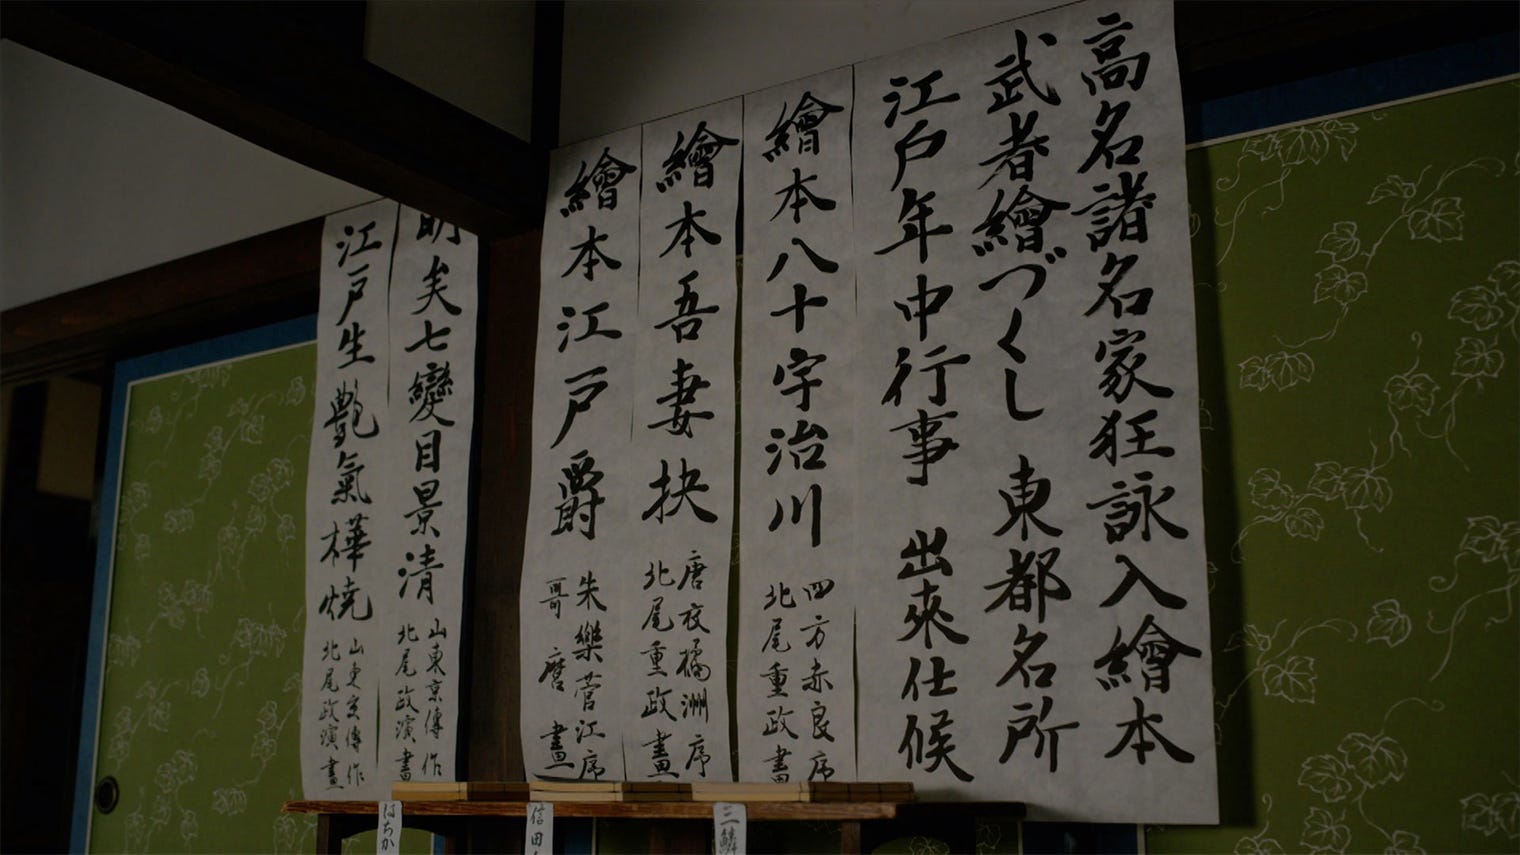 高名諸名家狂詠入繪本
武者繪づくし 東都名所
江戸年中行事 出來仕候
繪本八十宇治川
四方赤良序
北尾重政畫
繪本吾妻抉
唐衣橘洲序
北尾重政畫
繪本江戸爵
朱樂菅江序
哥麿畫
明矣七變目景清
山東京傳作
北尾政演畫
江戸生艶氣樺焼
山東京傳作
北尾政演畫
はちか
信田
三鱗